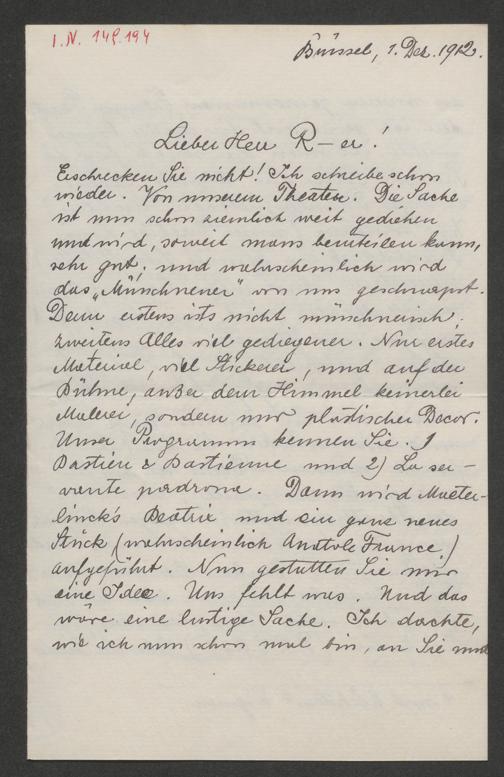 I.N. 149.194
Brüssel, 1. Dez. 1912.
Lieber Herr R—er!
Erschrecken Sie nicht! Ich schreibe schon
wieder. Von unserem Theater. Die Sache
ist nun schon ziemlich weit gediehen
und wird, soweit mans beurteilen kann,
sehr gut; und wahrscheinlich wird
das „Münchnener" von uns
Denn erstens ists nicht münchnerisch,
zweitens Alles viel gediegener. Nur erstes
Material, viel Stickerei, und auf der
Bühne, außer dem Himmel keinerlei
Malerei, sondern nur plastischer Decor.
Unser Programm kennen Sie. 1
Bastien & Bastienne und 2) La ser-
vante padrona. Dann wird Maeter-
linck's Beatrix und ein ganz neues
Stück (wahrscheinlich Anatole France)
aufgeführt. Nun gestatten Sie mir
eine Idee. Uns fehlt was. Und das
wäre eine lustige Sache. Ich dachte,
wie ich nun schon mal bin, an Sie und